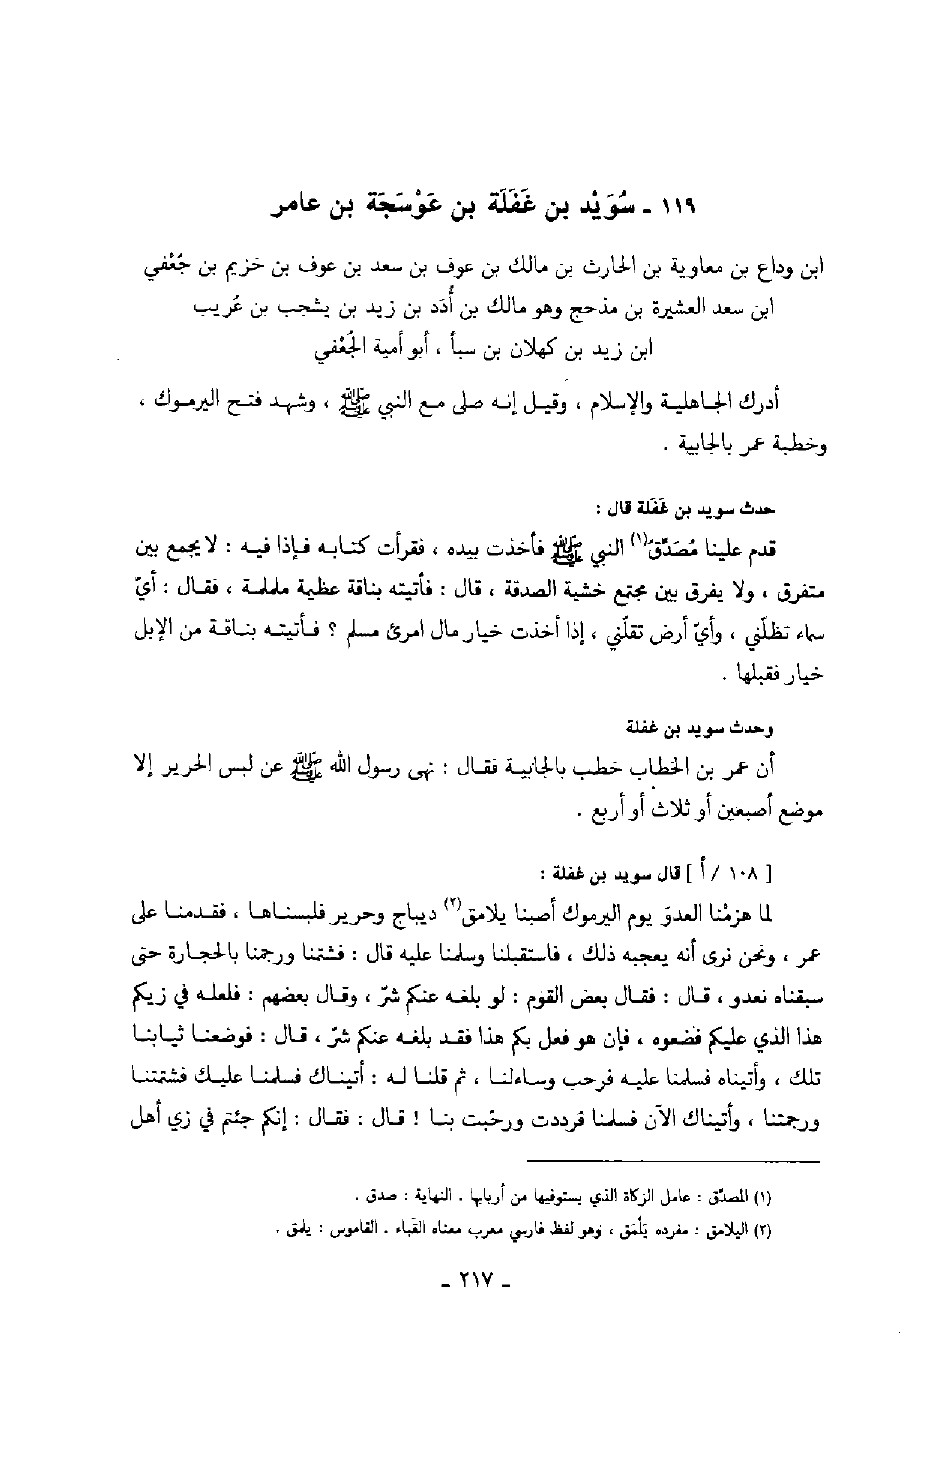 ١١٩ ـ سُوَيْد بن غَفَلَة بن عَوْسَجَة بن عامر
ابن وداع بن معاوية بن الحارث بن مالك بن عوف بن سعد بن عوف بن خزيم بن جُعْفي
ابن سعد العشيرة بن مذحج وهو مالك بن أُدَد بن زيد بن يشجب بن عُريب
ابن زيد بن كهلان بن سبأ ، أبو أمية الجُعْفي
أدرك الجاهلية والإسلام ، وقيل إنه صلى مع النبي ﷺ ، وشهد فتح اليرموك ،
وخطبة عمر بالجابية .
حدث سويد بن غَفَلة قال :
قدم علينا مُصَدِّقُ(١) النبي ﷺ فأخذت بيده ، فقرأت كتابه فإذا فيه : لا يجمع بين
متفرق ، ولا يفرق بين مجتمع خشية الصدقة ، قال : فأتيته بناقة عظيمة ململمة ، فقال : أيّ
سماء تظلّني ، وأيّ أرض تقلّني ، إذا أخذت خيار مال امرئ مسلم ؟ فأتيته بناقة من الإبل
خيار فقبلها .
وحدث سويد بن غفلة
أن عمر بن الخطاب خطب بالجابية فقال : نهى رسول الله ﷺ عن لبس الحرير إلا
موضع أصبعين أو ثلاث أو أربع .
[ ١٠٨ /أ ] قال سويد بن غفلة :
لما هزمْنا العدوّ يوم اليرموك أصبنا يلامق(٢) ديباج وحرير فلبسناها ، فقدمنا على
عمر ، ونحن نرى أنه يعجبه ذلك ، فاستقبلنا وسلمنا عليه قال : فشتمنا ورجمنا بالحجارة حتى
سبقناه نعدو ، قال : فقال بعض القوم : لو بلغه عنكم شرّ ، وقال بعضهم : فلعله في زيكم
هذا الذي عليكم فضعوه ، فإن هو فعل بكم هذا فقد بلغه عنكم شرّ ، قال : فوضعنا ثيابنا
تلك ، وأتيناه فسلمنا عليه فرحب وساءلنا ، ثم قلنا له : أتيناك فسلمنا عليك فشتمتنا
ورجمتنا ، وأتيناك الآن فسلمنا فرددت ورحّبت بنا ! قال : فقال : إنكم جئتم في زي أهل
(١) المصدّق : عامل الزكاة الذي يستوفيها من أربابها . النهاية : صدق .
(٢) اليلامق : مفرده يَلْمَق ، وهو لفظ فارسي معرب معناه القَباء . القاموس : يلمق .
ـ ٢١٧ ـ